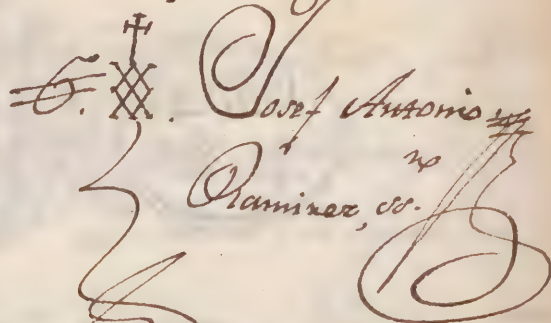 Josef Antonio
Ramirez, ss.